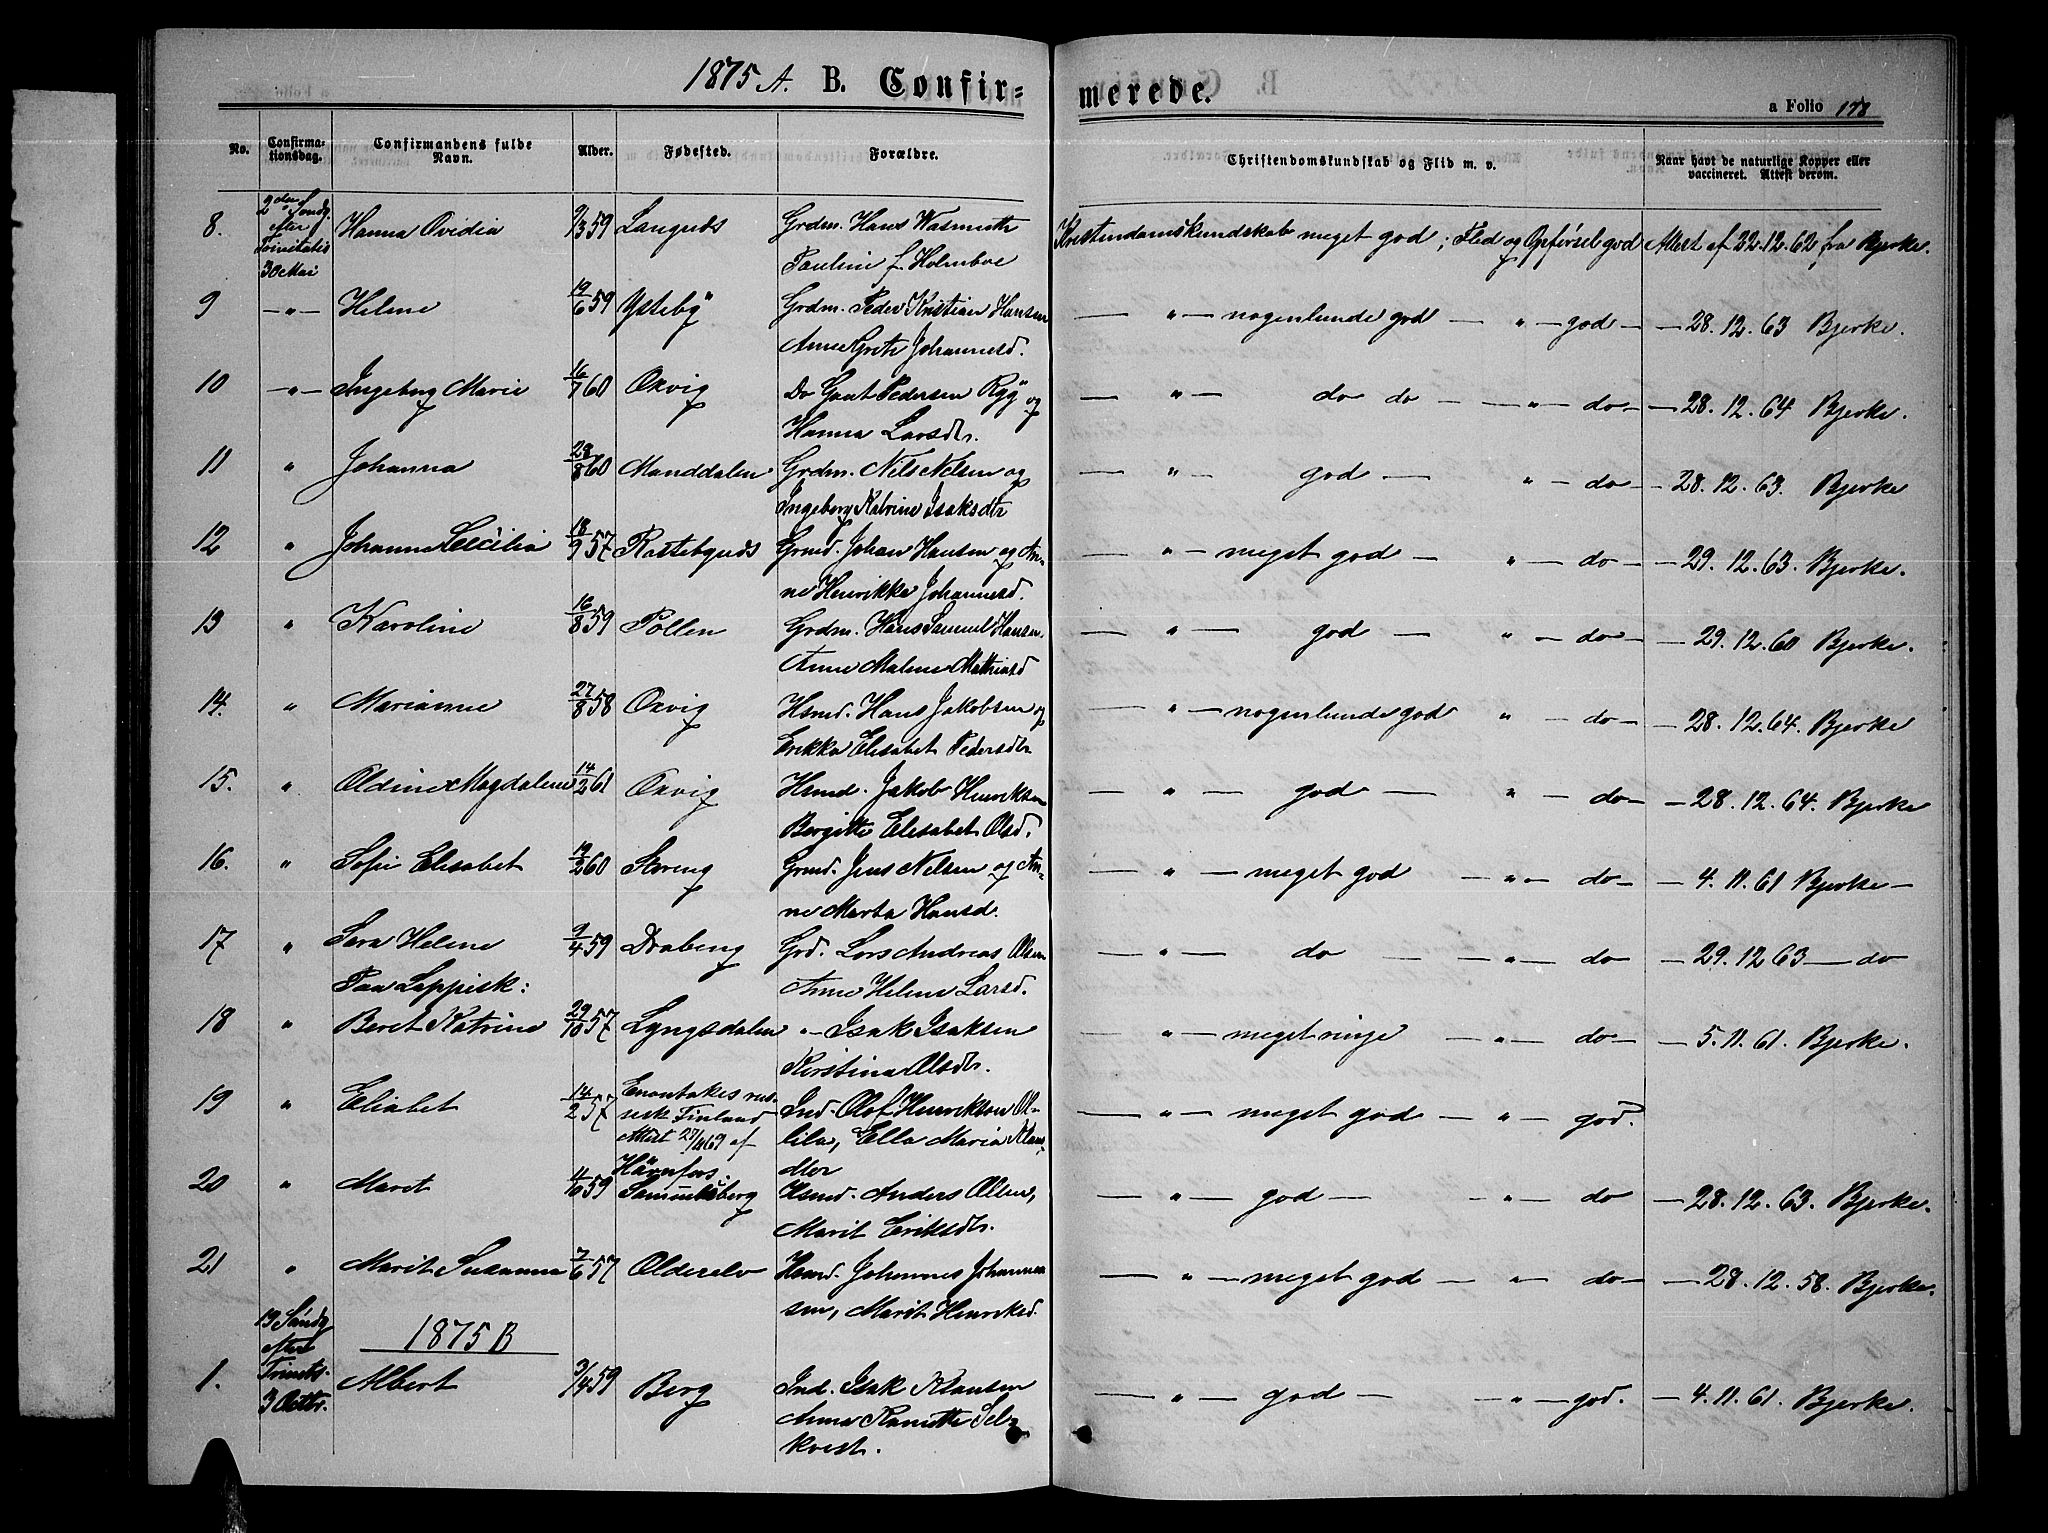 1875 A. B. Confirmerede. a Folio 178
No. Confirmationsdag. Confirmandens fulde Navn. Alder. Fødested. Forældre. Christendomskundskab og Flid m. v. Naar havt de naturlige Kopper eller vaccineret. Attest derom.
8. 2den Søndg efter Trinitatis 30 Mai Hanna Ovidia 9/3 59 Langnds Grdm. Hans Wasmuth Kristendomskundskab meget god; Flid og Opførsel god Attest af 22.12.62 fra Bjerke.
Pauline f. Holmboe
9 -"- Helene 19/6 59 Ysteby Grdm. Peder Kristian Hansen — " — nogenlunde god — " — god — — 28.12.63 Bjerke.
Anne Grete Johannesd.
10 -"- Ingeborg Marie 16/7 60 Oxvig Do Gunt Pedersen Ryg og — " — do do — — " — do — — 28.12.64 Bjerke.
Hanna Larsdtr.
11 " Johanna 28/8 60 Manddalen Grdm. Nils Nelsen og — " — god — " — do — — 28.12.63. Bjerke
Ingeborg Katrine Isaksdtr
12 " Johanne Cecilia 18/9 57 Rastebynds Grmd. Johan Hansen og An- — " — meget god — " — do — — 29.12.63. Bjerke.
ne Henrikke Johannesd.
13 " Karoline 16/8 59 Pollen Grdm. Hans Samuel Hansen. — " — god — " — do — — 29.12.60 Bjerke.
Anne Malene Mathiasd
14. " Marianne 27/8 58 Oxvig Hsmd. Hans Jakobsen og — " — nogenlunde god " — do — — 28.12.64. Bjerke
Erikka Elisabet Pedersdtr
15. " Oldine Magdalene 14/2 61 Oxvig Hsmd. Jakob Henriksen — " — god — " — do — — 28.12.64. Bjerke
Bergitte Elisabet Olsd.
16. " Sofie Elisabet 19/2 60 Storeng Grmd. Jens Nelsen og An- — " — meget god — " — do — — 4.11.61 Bjerke —
ne Marta Hansd.
17 " Sara Helene 9/4 59 Draheng Grd. Lars Andreas Olsen — " — do — — " — do — 29.12 63 — do
Paa Lappisk: Anne Helene Larsd.
18 " Beret Katrine 29/10 57 Lyngsdalen "- Isak Isaksen — " — meget ringe — " — do — — 5.11.61. Bjerke.
Kerstina Olsdtr.
19 " Eliabet 14/2 57 Enontekes rus- Ind. Olof Henrikson Ol- — " — meget god — " — god.
sisk Finland lila, Ella Maria Klaus-
Attest 27/4 69 af dtter
20 " Maret 4/10 59 Samuelsberg Hsmd. Anders Olsen, — " — god — — " — do — 28.12.63. Bjerke.
Marit Eriksdtr.
21 " Marit Susanna 7/6 57 Olderelv Hsmd. Johannes Johannes — " — meget god — " — do — — 28.12.58. Bjerke.
sen, Marit Henriksd.
1875 B
1. 19 Søndg efter Trinits. 3 Octbr. Albert 3/4 59 Berg Ind. Isak Klausen — " — god — — " — god. — 4.11.61. Bjerke.
Anna Ranette Sel-
kvist.